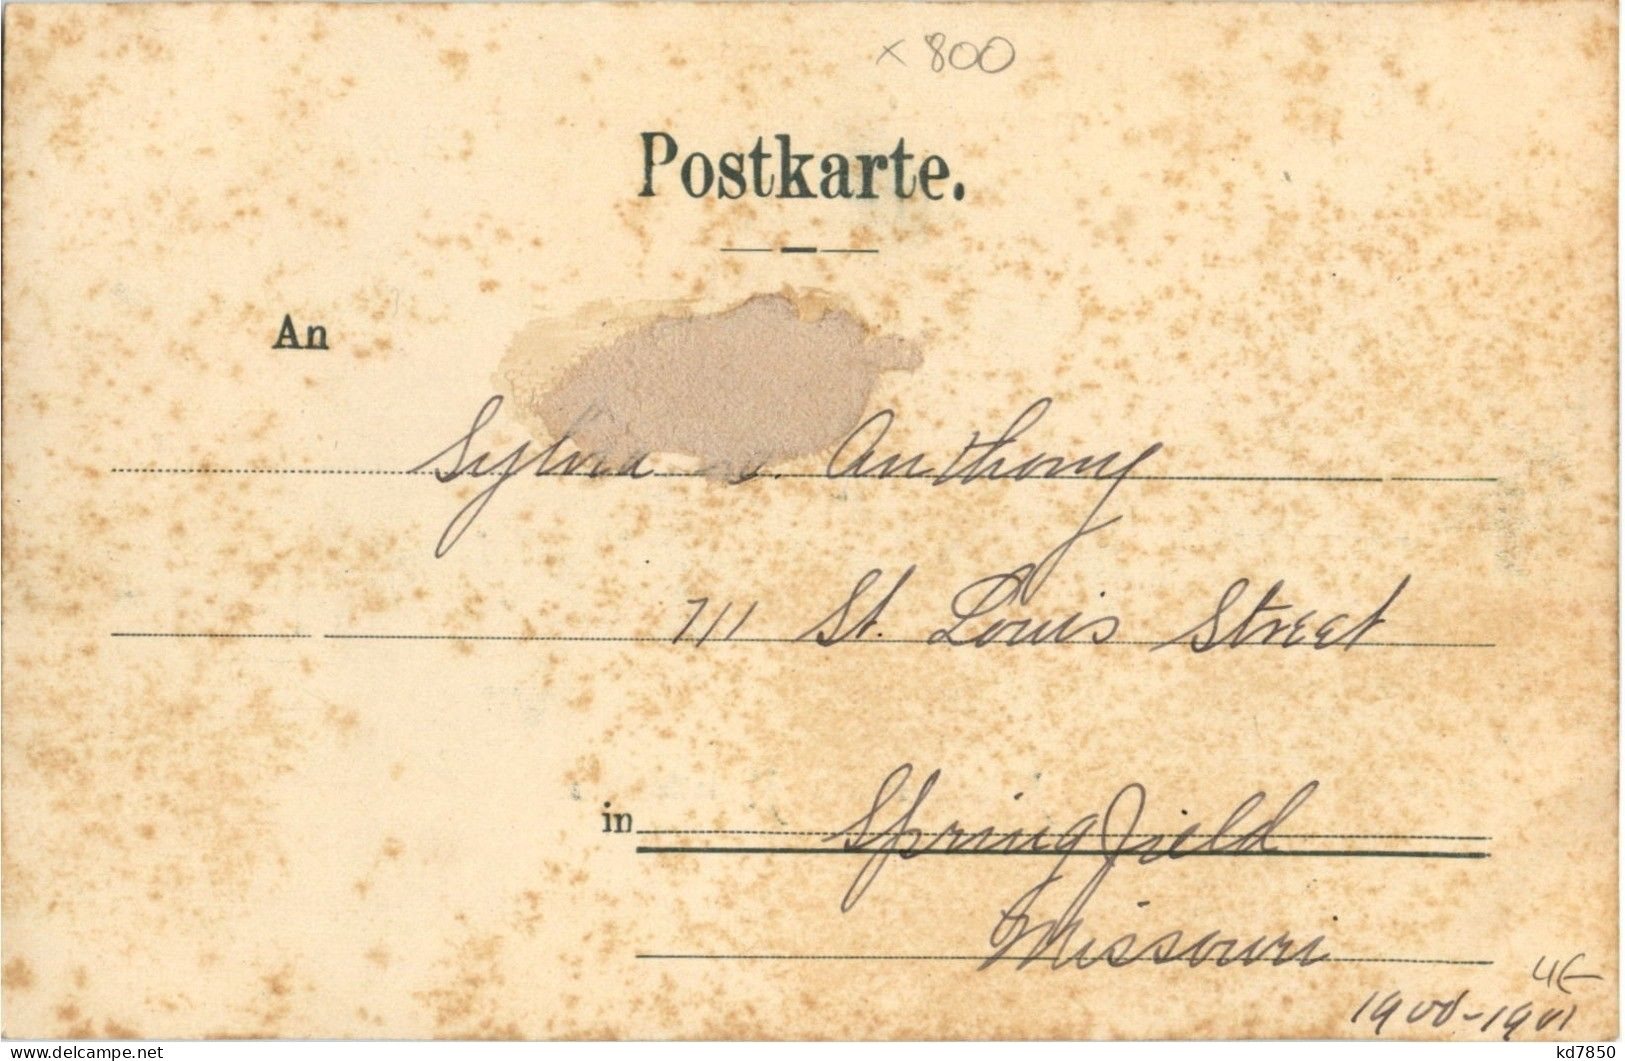 x 800
Postkarte.
An
Sylvia D. Anthony
711 St. Louis Street
in Springfield
Missouri
4€
1900-1901
kd7850